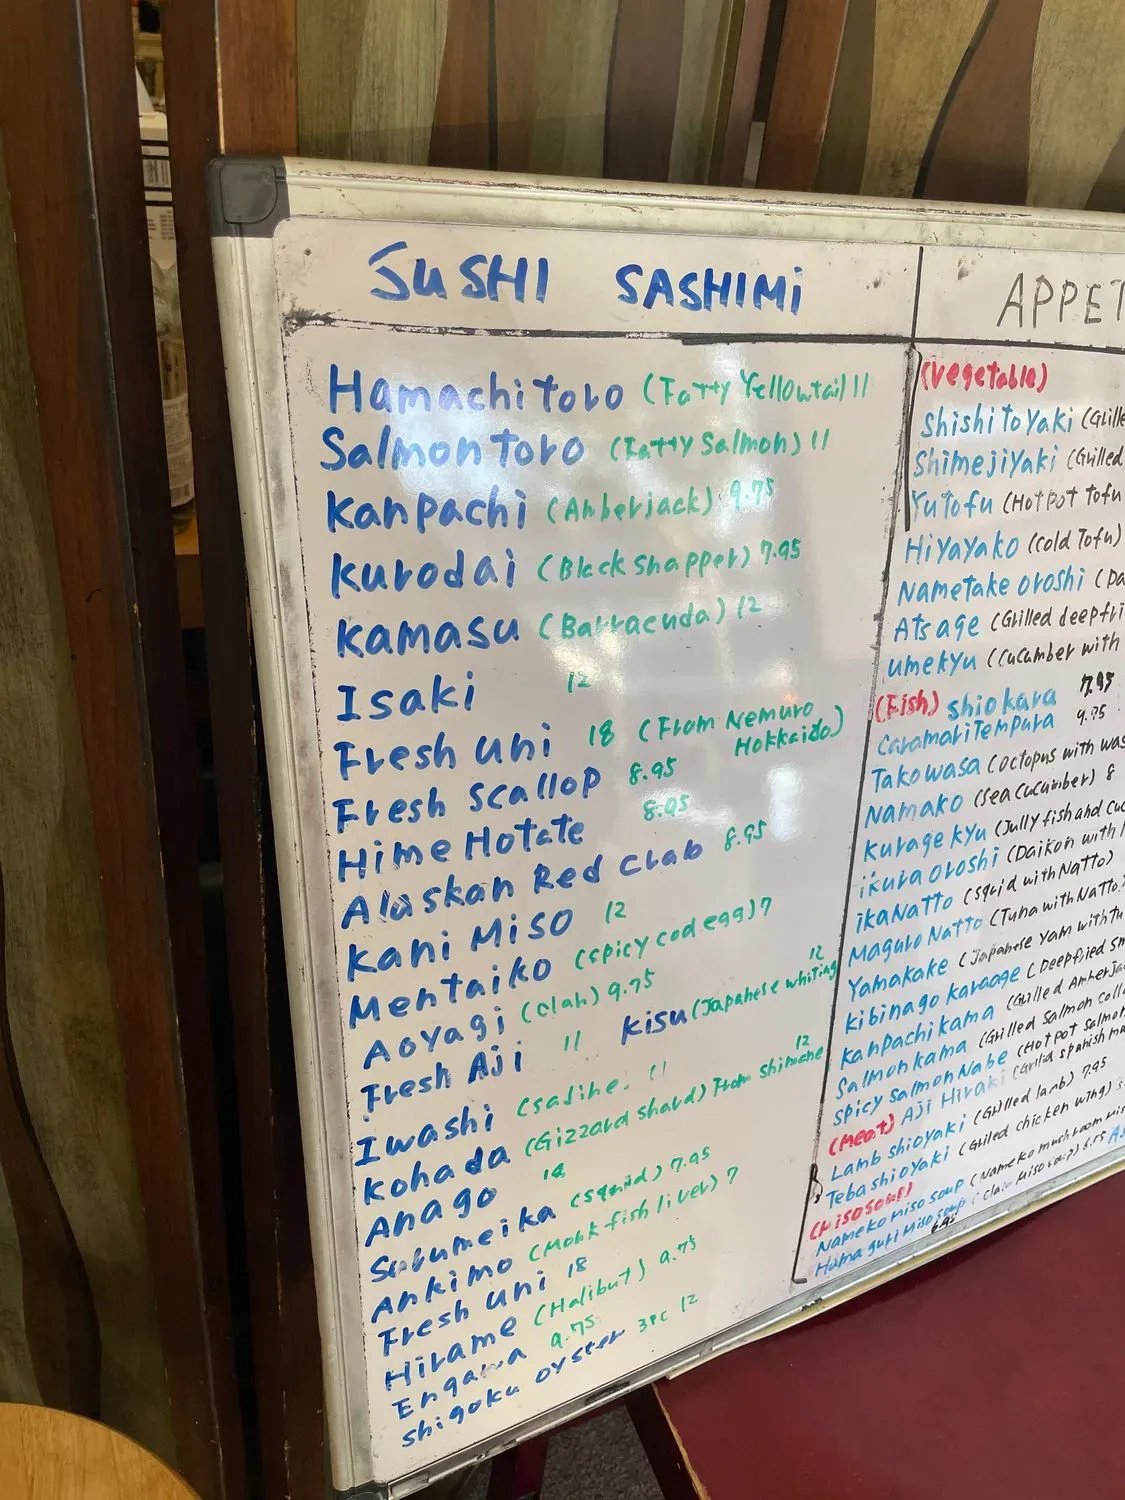 SUSHI SASHIMI
Hamachi toro (Fatty Yellowtail) 11
Salmon toro (Fatty Salmon) 11
Kanpachi (Amberjack) 9.75
Kurodai (Black snapper) 7.95
Kamasu (Barracuda) 12
Isaki 12
Fresh uni 18 (From Nemuro
Hokkaido)
Fresh scallop 8.95
Hime Hotate 8.95
Alaskan Red clab 8.95
Kani Miso 12
Mentaiko (spicy cod egg) 7
Aoyagi (clah) 9.75
Fresh Aji 11
Kisu (Japanese whiting 12
Iwashi (sadine. 11
Kohada (Gizzard shard) From shimane 12
Anago
Surumeika (squid) 7.95
Ankimo (Monk fish liver) 7
Fresh uni 18
Hirame (Halibut) 9.75
Engawa 9.75
shigoku oyster 3PC 12
APPET
(vegetable)
Shishi to Yaki (Grille
ShimejiYaki (Grilled
Yu Tofu (Hot Pot Tofu
Hiyayako (Cold Tofu)
Nametake oroshi (Da
Atsage (Grilled deepfri
umekyu (Cucumber with
(Fish) shiokara 7.95
Caramari Tempura 9.75
Takowasa (octopus with was
Namako (sea cucumber) 8
Kurage Kyu (Jully fish and cuc
ikura oroshi (Daikon with i
ika Natto (squid with Natto)
Maguro Natto (Tuna with Natto
Yamakake (Japanese Yam with tu
Kibinago Karaage (Deepfried sm
Kanpachi kama (Grilled Amberja
Salmon kama (Grilled Salmon colla
spicy salmon Nabe (Hot pot salmon
(Meat) Aji Hiraki (Grilld spanish ma
Lamb shioyaki (Grilled lamb) 7.95
Teba shioyaki (Grilled chicken wing)
(Miso soup)
Nameko miso soup (Nameko mushroom mis
Hamaguri Miso soup (clam miso soup) 6.75
6.95